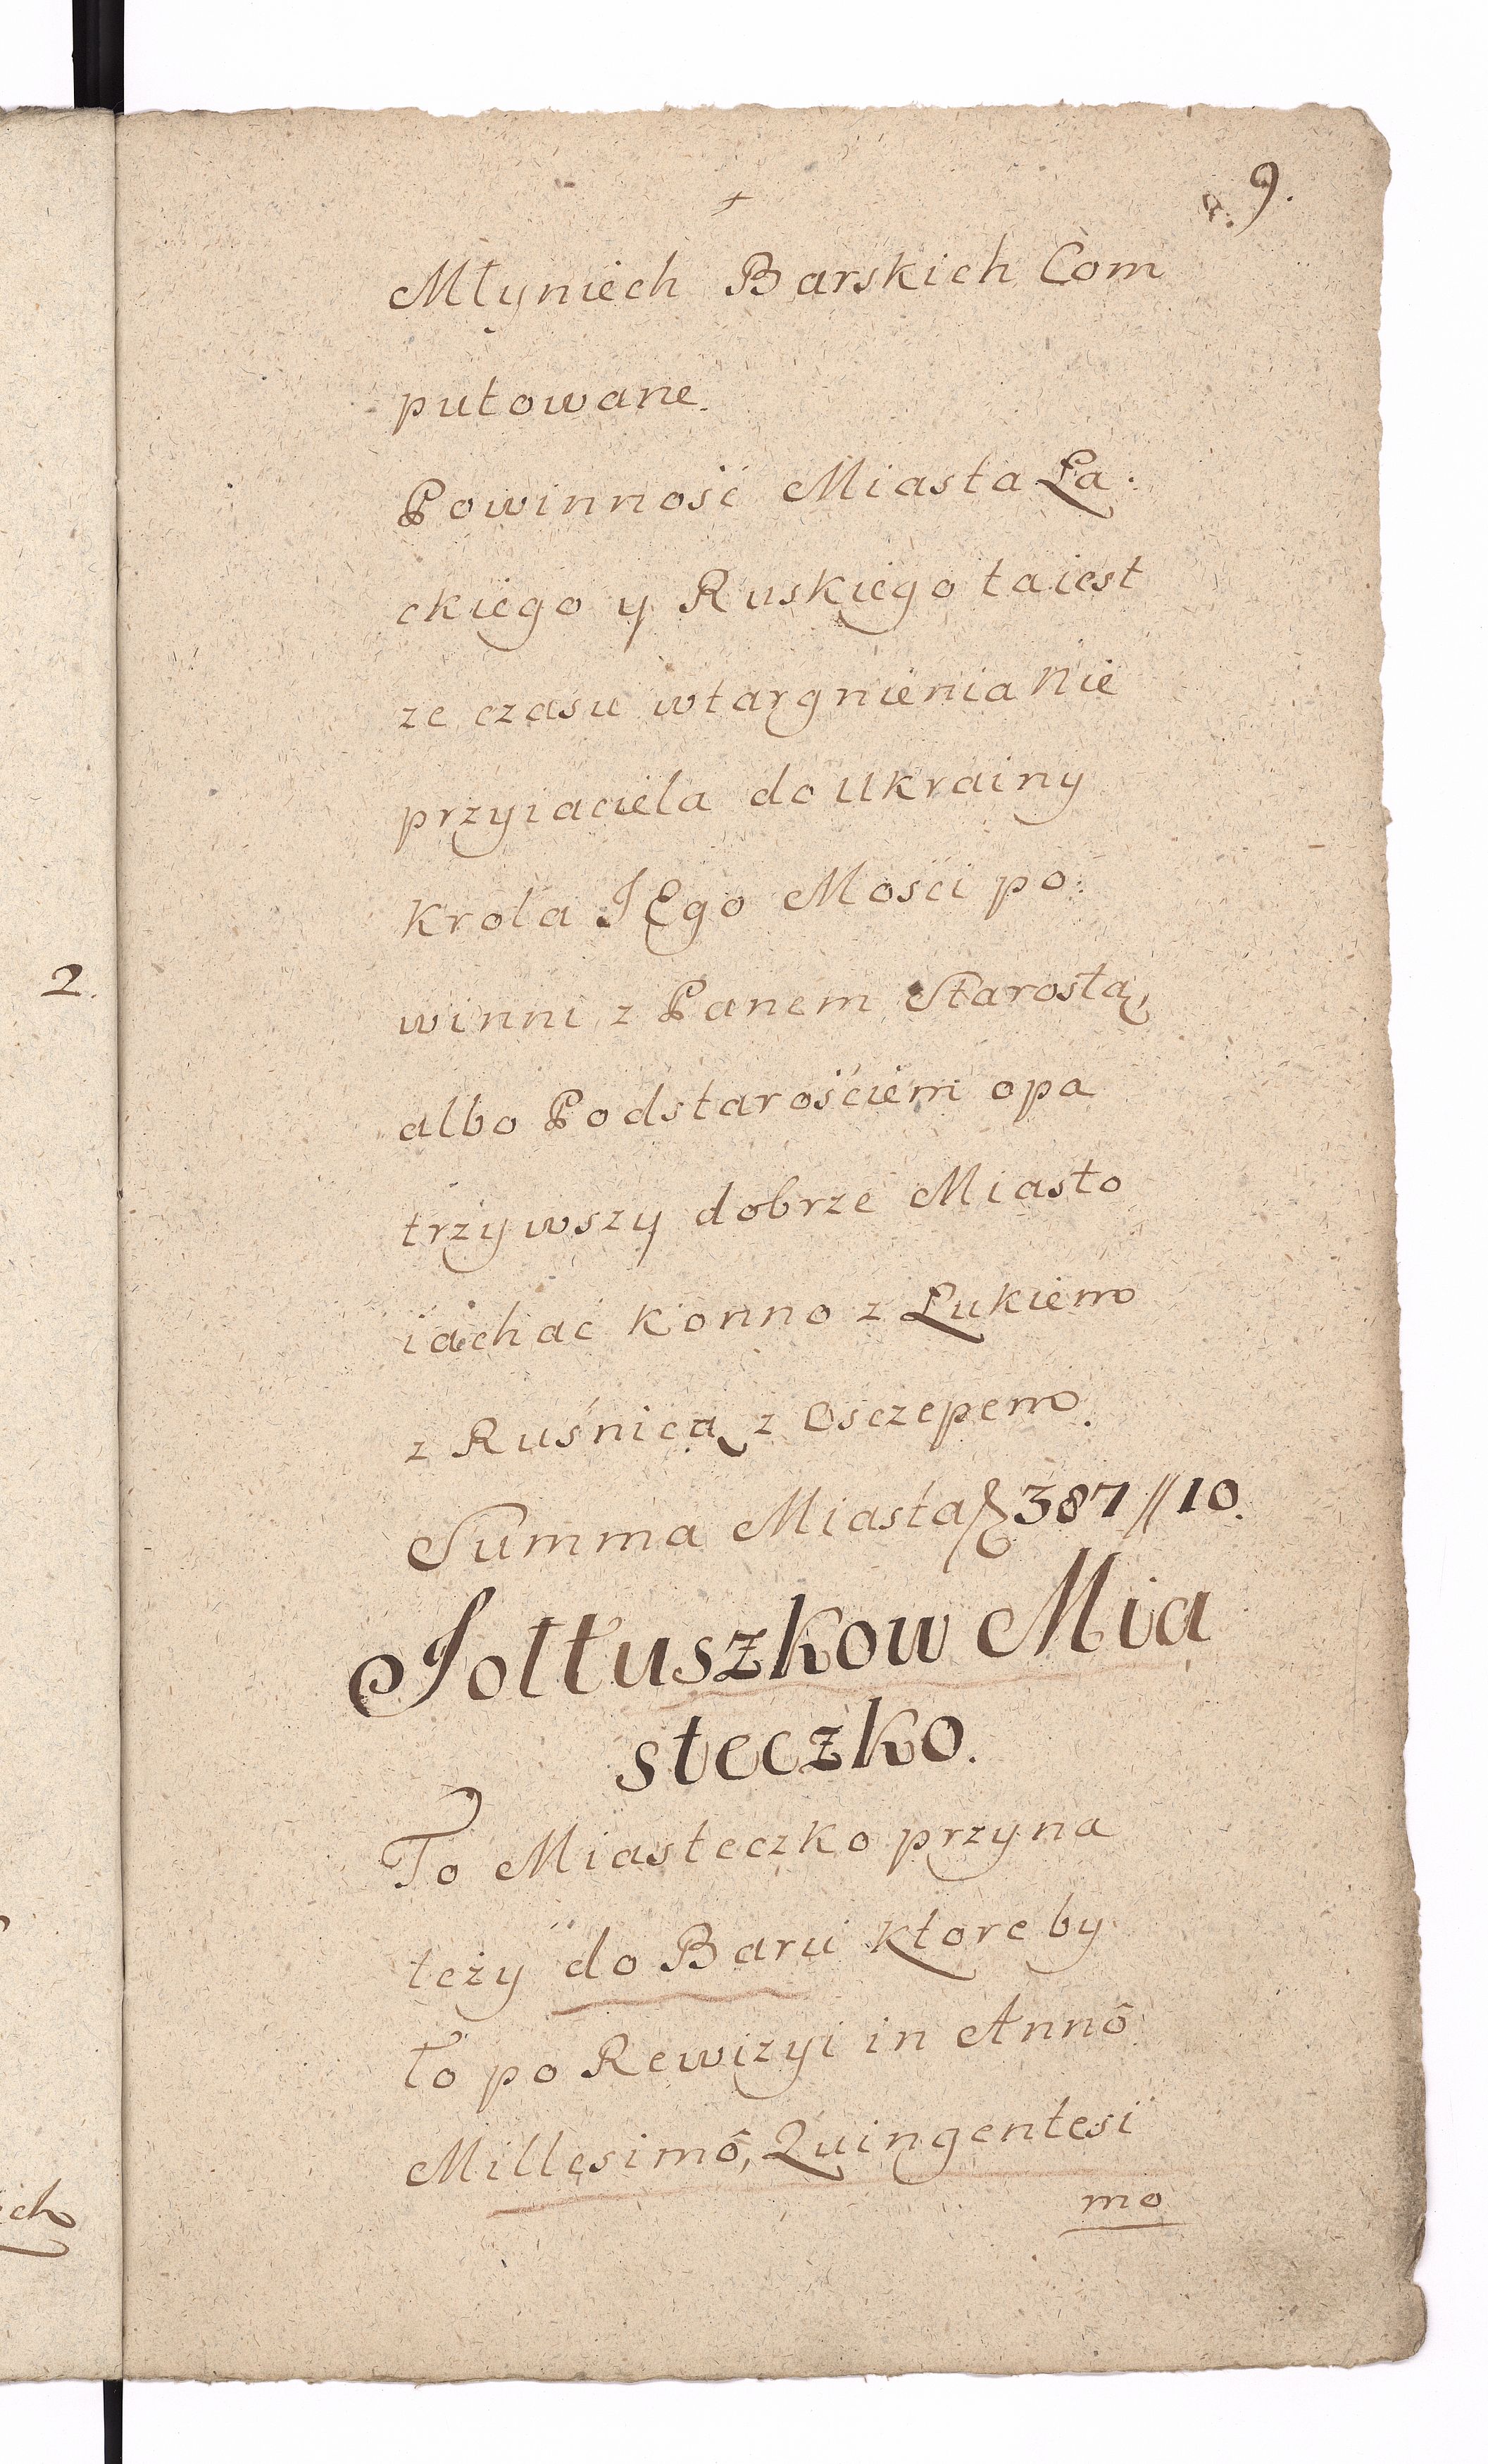 9.
Młyniech Barskich Com
putowane.
Powinność Miasta La:
ckiego y Ruskiego ta iest
ze czasu wtargnienia Nie
przyiaciela do Ukrainy
Krola JEgo Mości po:
winni z Panem Starostą,
albo Podstarościem opa
trzywszy dobrze Miasto
iachać konno z Łukiem
z Ruśnicą z Osczepem.
Summa Miasta 387//10.
Jołtuszkow Mia
steczko.
To Miasteczko przyna
leży do Baru ktore by
ło po Rewizyi in Annô
Millesimô, Quingentesi
mo
2.
ich